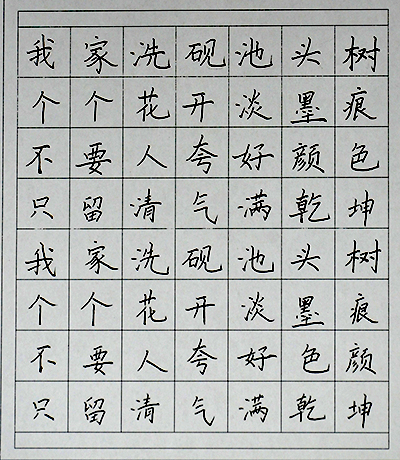 我家洗砚池头树
个个花开淡墨痕
不要人夸好颜色
只留清气满乾坤
我家洗砚池头树
个个花开淡墨痕
不要人夸好色颜
只留清气满乾坤